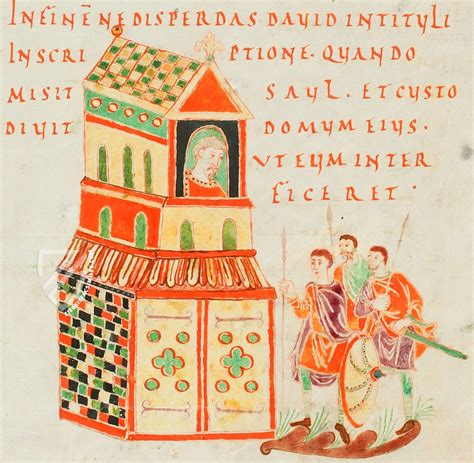 IN FINĒ NE DISPERDAS DAVID IN TITVLI
INSCRI PTIONE. QVANDO
MISIT SAVL. ET CVSTO
DIVIT DOMVM EIVS.
VT EVM INTER
FICERET.